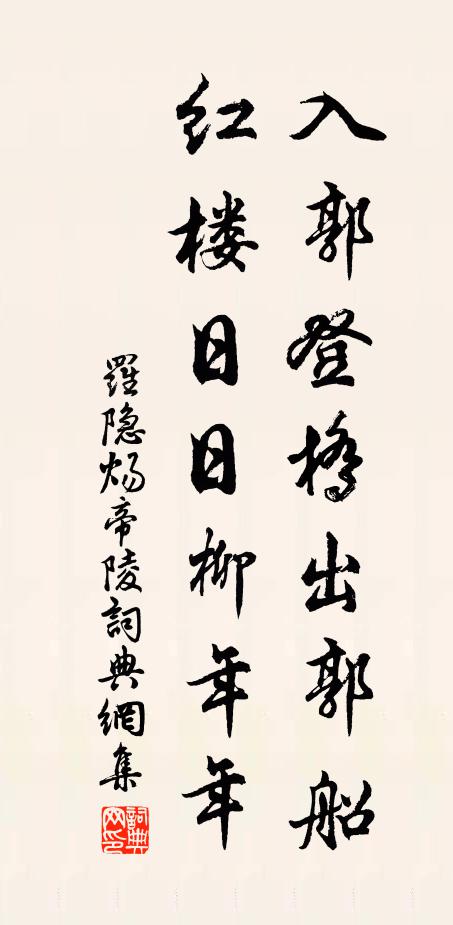 入郭登橋出郭船
红楼日日柳年年
羅隐炀帝陵詞典網集
詞典